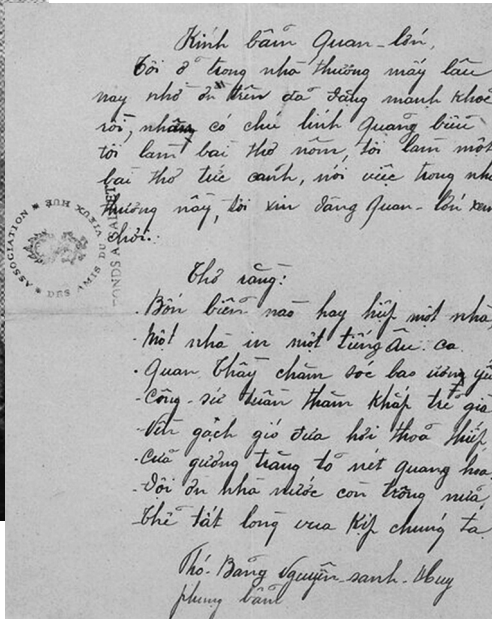 Kính bẩm Quan-lớn,
Tôi ở trong nhà thương mấy lâu
nay nhờ ơn trên đã đặng mạnh khoẻ
rồi, nhưng có chú lính Quang biểu
tôi làm bài thơ nôm, tôi làm một
bài thơ tức cảnh, nói việc trong nhà
thương này, tôi xin dâng Quan-lớn xem
chơi.:
Thơ rằng:
.Bốn biển nào hay hiệp một nhà
.Một nhà in một tiếng Âu. ca
.Quan Thầy chăm sóc bao
-Công-sứ tuần thăm khắp trẻ già
-Vên gạch gió đưa hơi thoả
.Cửa gương trăng tỏ nét quang hoa
-Đội ơn nhà nước còn trông nữa,
.Thế tất lòng vua kịp chúng ta
Thơ-Bảng Nguyễn-sanh-Huy
phụng bẩm
ASSOCIATION * DES AMIS DU VIEUX HUE *
FONDS A. SALLET